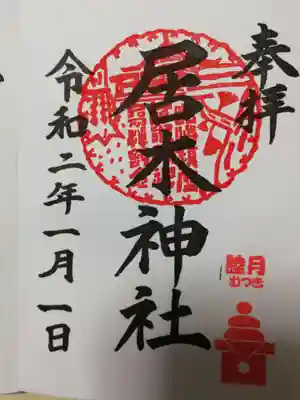 奉拝
居木神社
睦月
むつき
令和二年一月一日